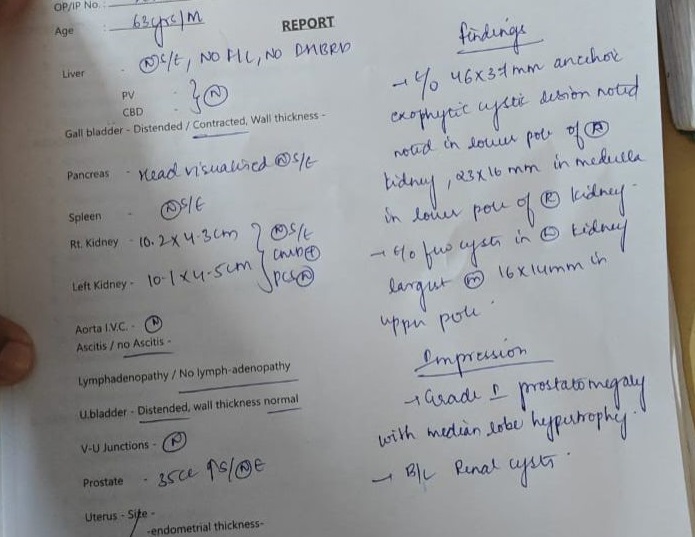 OP/IP No. :
Age : 63yrs/M
REPORT
Liver - Ⓝ S/E, NO FLC, NO DHBRD
PV - } Ⓝ
CBD -
Gall bladder - Distended / Contracted, Wall thickness -
Pancreas - Head visualised Ⓝ S/E
Spleen - Ⓝ S/E
Rt. Kidney - 10.2 x 4.3cm } Ⓝ S/E
CMD ⊕
Left Kidney - 10.1 x 4.5cm PCS Ⓝ
Aorta I.V.C. - Ⓝ
Ascitis / no Ascitis -
Lymphadenopathy / No lymph-adenopathy
U.bladder - Distended, wall thickness normal
V-U Junctions - Ⓝ
Prostate - 35cc ↑S/Ⓝ E
Uterus - Size -
-endometrial thickness-
findings
→ e/o 46x37mm anechoic
exophytic cystic lesion noted
noted in lower pole of Ⓡ
kidney, 23x16 mm in medulla
in lower pole of Ⓡ kidney.
→ e/o few cysts in Ⓛ kidney
largest Ⓜ 16x14mm in
upper pole.
Impression
→ Grade I prostatomegaly
with median lobe hypertrophy.
→ B/L Renal cysts.